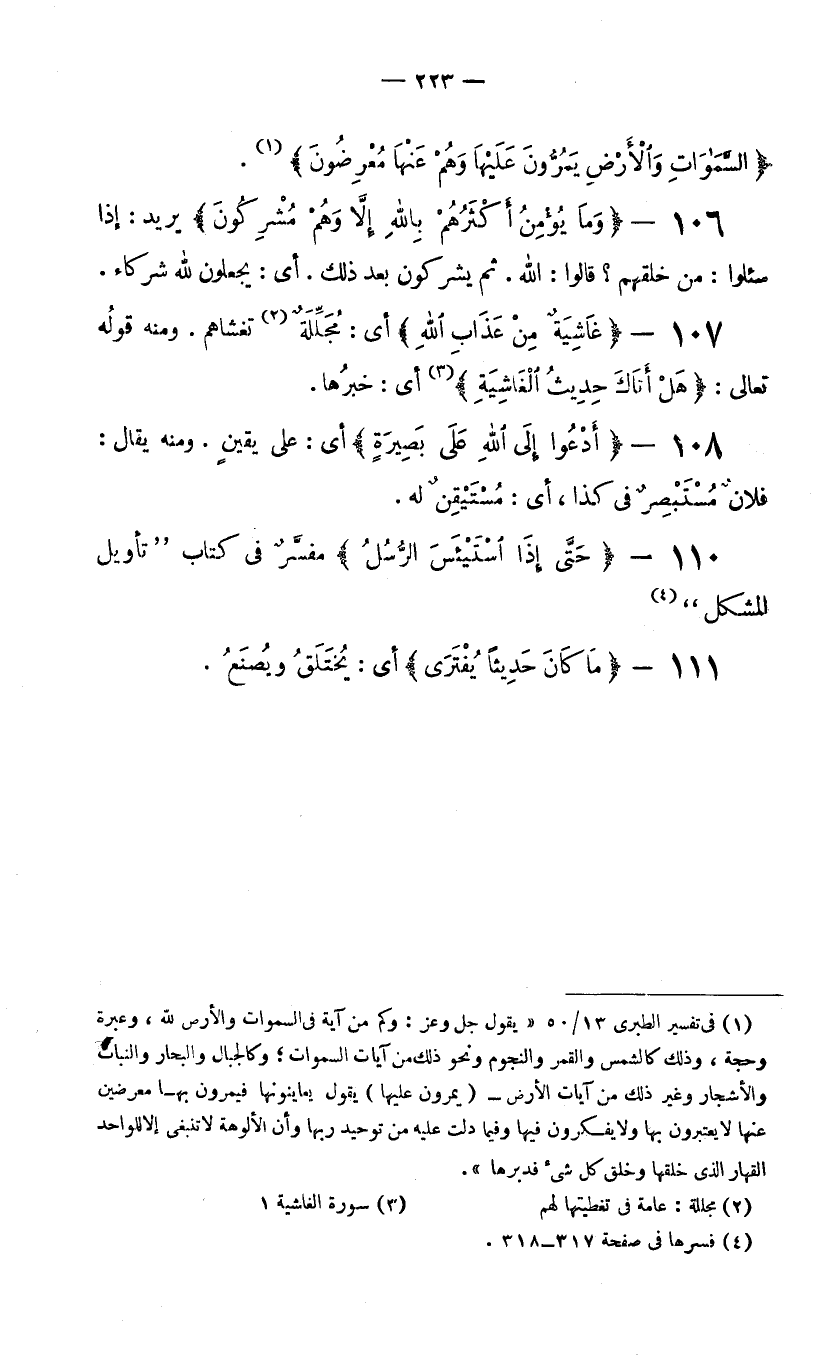 — ٢٢٣ —
﴿ السَّمَوَاتِ وَٱلْأَرْضِ يَمُرُّونَ عَلَيْهَا وَهُمْ عَنْهَا مُعْرِضُونَ ﴾ (١) .
١٠٦ — ﴿ وَمَا يُؤْمِنُ أَكْثَرُهُمْ بِاللهِ إِلَّا وَهُمْ مُشْرِكُونَ ﴾ يريد : إذا
سئلوا : من خلقهم ؟ قالوا : الله . ثم يشركون بعد ذلك . أى : يجعلون لله شركاء .
١٠٧ — ﴿ غَاشِيَةٌ مِنْ عَذَابِ ٱللهِ ﴾ أى : مُجَلِّلَةٌ (٢) تغشاهم . ومنه قولُه
تعالى : ﴿ هَلْ أَتَاكَ حَدِيثُ ٱلْغَاشِيَةِ ﴾ (٣) أى : خبرُها .
١٠٨ — ﴿ أَدْعُوا إِلَى ٱللهِ عَلَى بَصِيرَةٍ ﴾ أى : على يقينٍ . ومنه يقال :
فلانٌ مُسْتَبْصِرٌ فى كذا ، أى : مُسْتَيْقِنٌ له .
١١٠ — ﴿ حَتَّى إِذَا ٱسْتَيْئَسَ الرُّسُلُ ﴾ مفسَّرٌ فى كتاب ” تأويل
المشكل “ (٤)
١١١ — ﴿ مَا كَانَ حَدِيثًا يُفْتَرَى ﴾ أى : يُخْتَلَقُ ويُصْنَعُ .
(١) فى تفسير الطبرى ١٣/ ٥٠ « يقول جل وعز : وكم من آية فى السموات والأرض لله ، وعبرة
وحجة ، وذلك كالشمس والقمر والنجوم ونحو ذلك من آيات السموات ؛ وكالجبال والبحار والنبات
والأشجار وغير ذلك من آيات الأرض — ( يمرون عليها ) يقول يعاينونها فيمرون بهـا معرضين
عنها لا يعتبرون بها ولا يفـكرون فيها وفيما دلت عليه من توحيد ربها وأن الألوهة لا تنبغى إلا للواحد
القهار الذى خلقها وخلق كل شىء فدبرها » .
(٢) مجللة : عامة فى تغطيتها لهم (٣) سورة الغاشية ١
(٤) فسرها فى صفحة ٣١٧—٣١٨ .